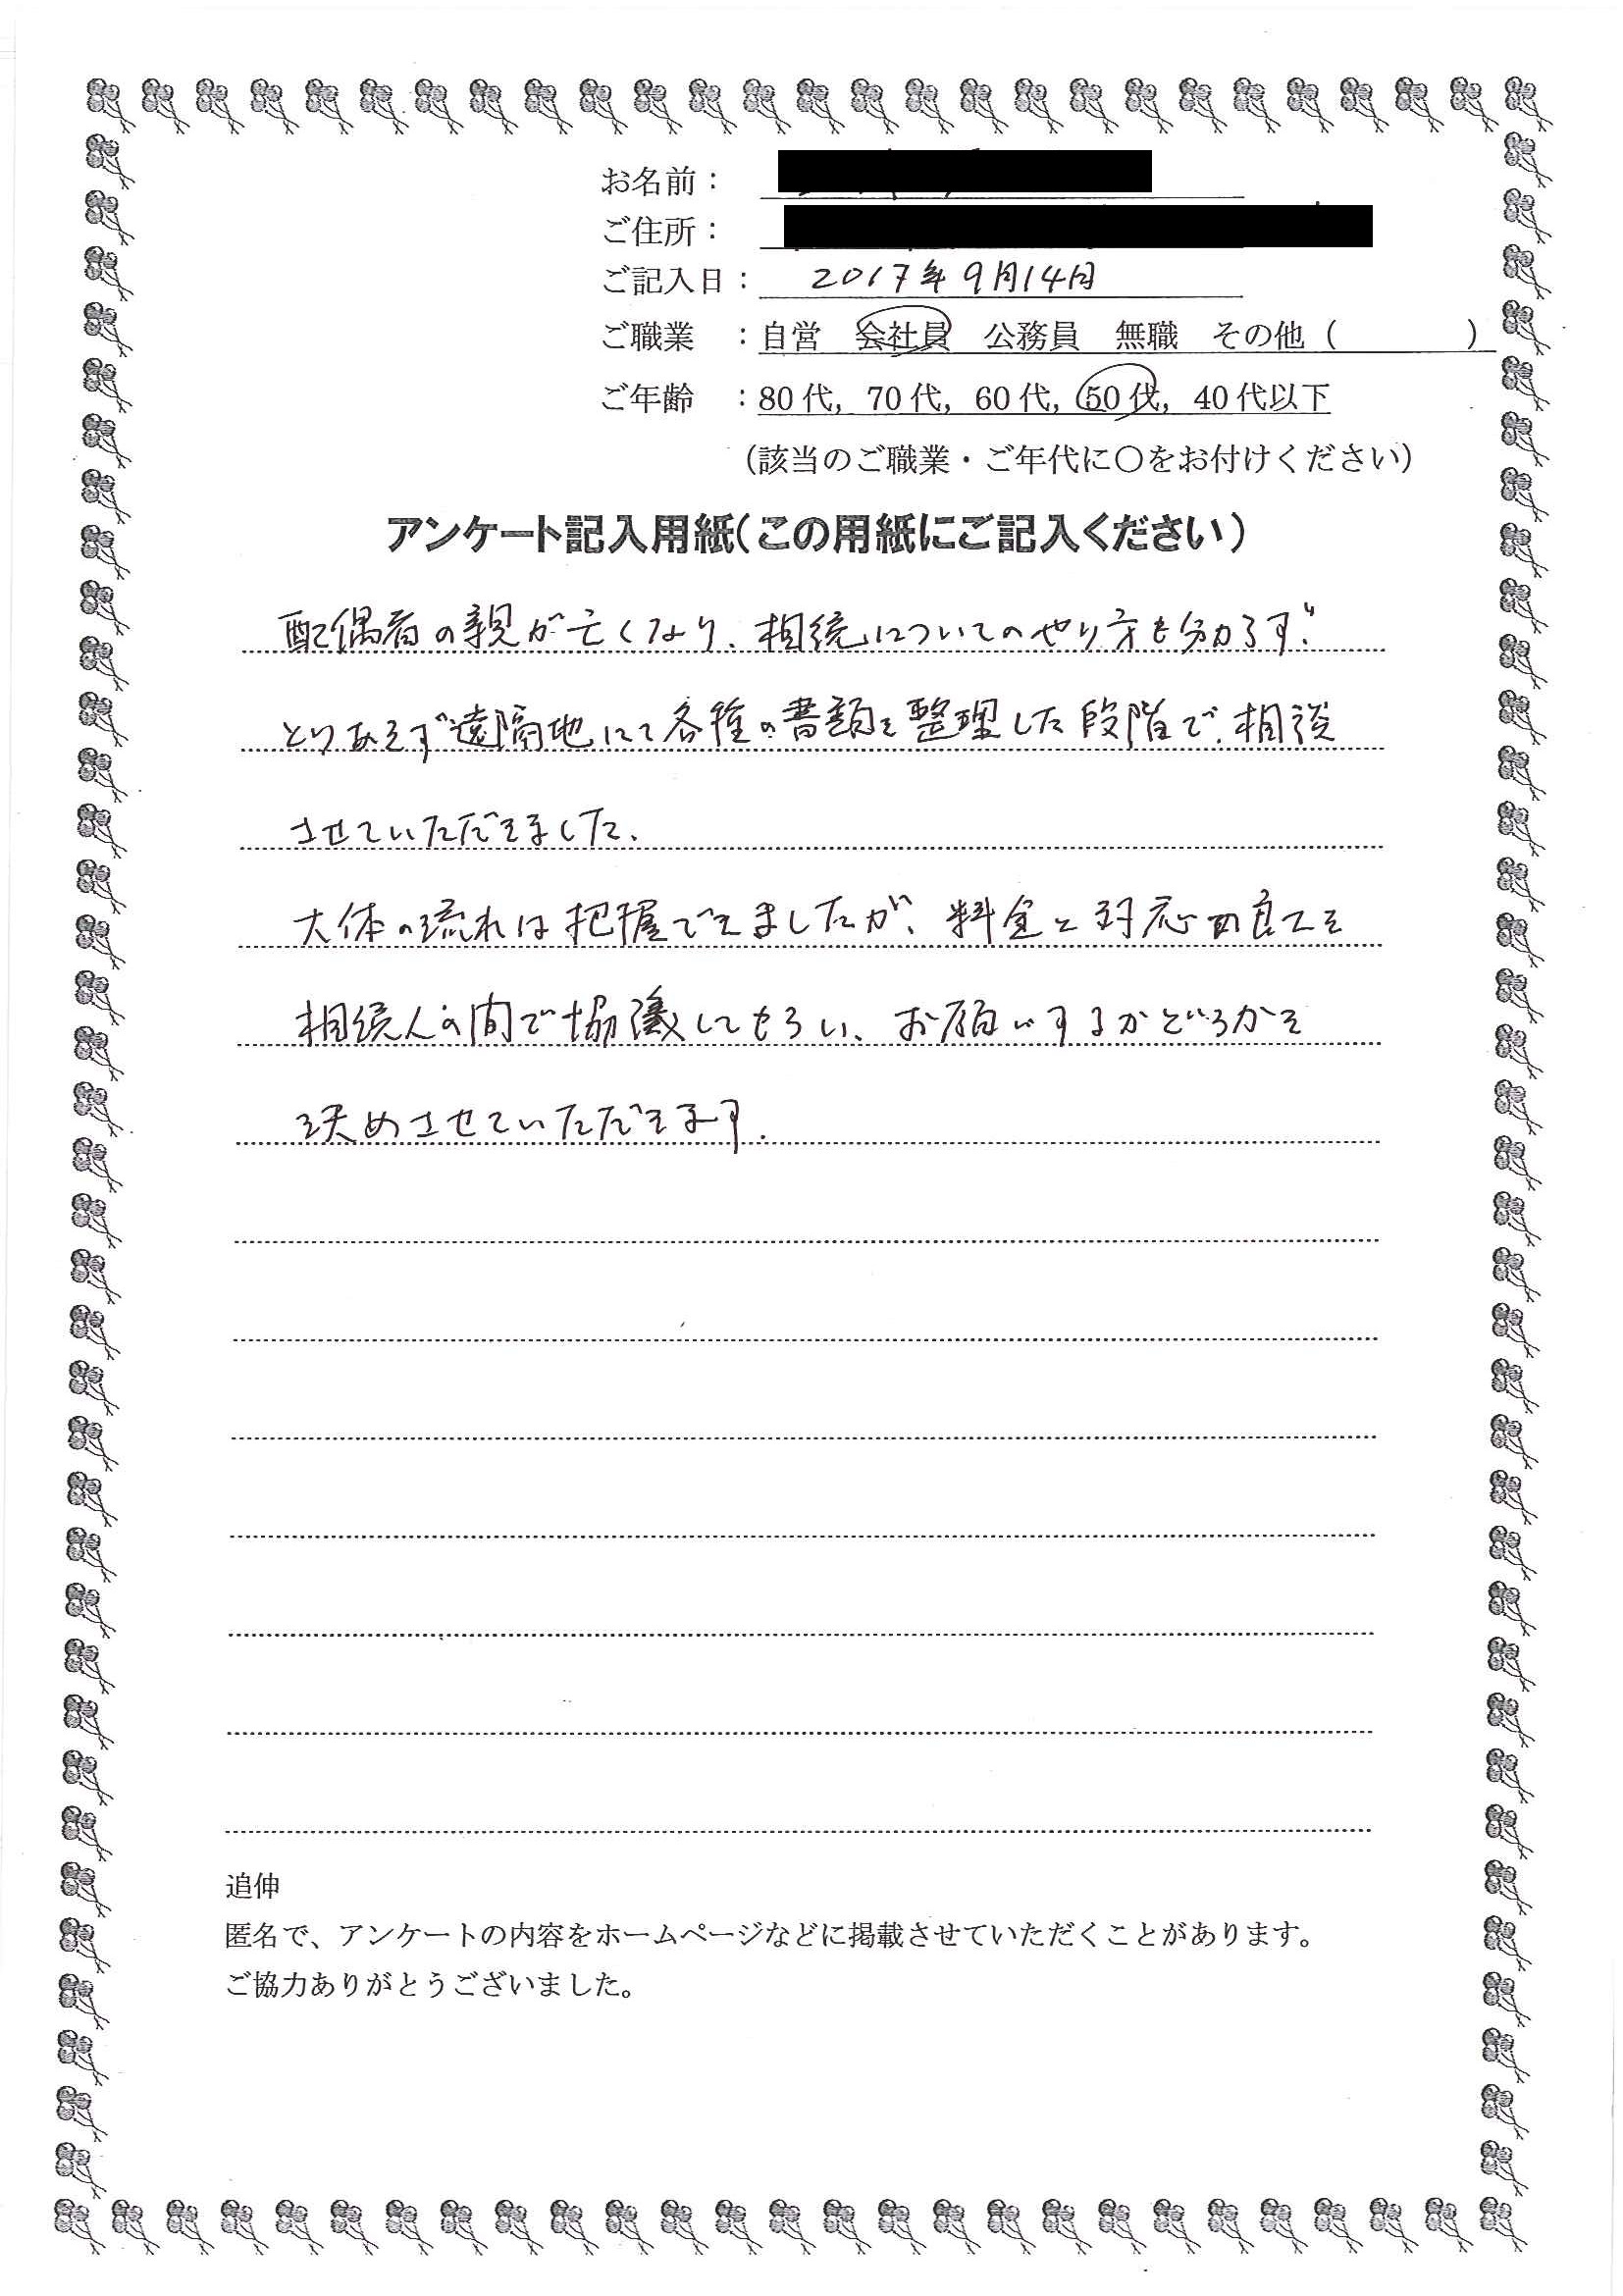 お名前：
ご住所：
ご記入日： 2017年9月14日
ご職業 ：自営 会社員 公務員 無職 その他（ ）
ご年齢 ：80代，70代，60代，50代，40代以下
（該当のご職業・ご年代に〇をお付けください）
アンケート記入用紙（この用紙にご記入ください）
配偶者の親が亡くなり、相続についてのやり方も分からず、
とりあえず遠隔地にて各種の書類を整理した段階で、相談
させていただきました、
大体の流れは把握できましたが、料金と対応の良さを
相続人の間で協議してもらい、お願いするかどうかを
決めさせていただきます.
追伸
匿名で、アンケートの内容をホームページなどに掲載させていただくことがあります。
ご協力ありがとうございました。